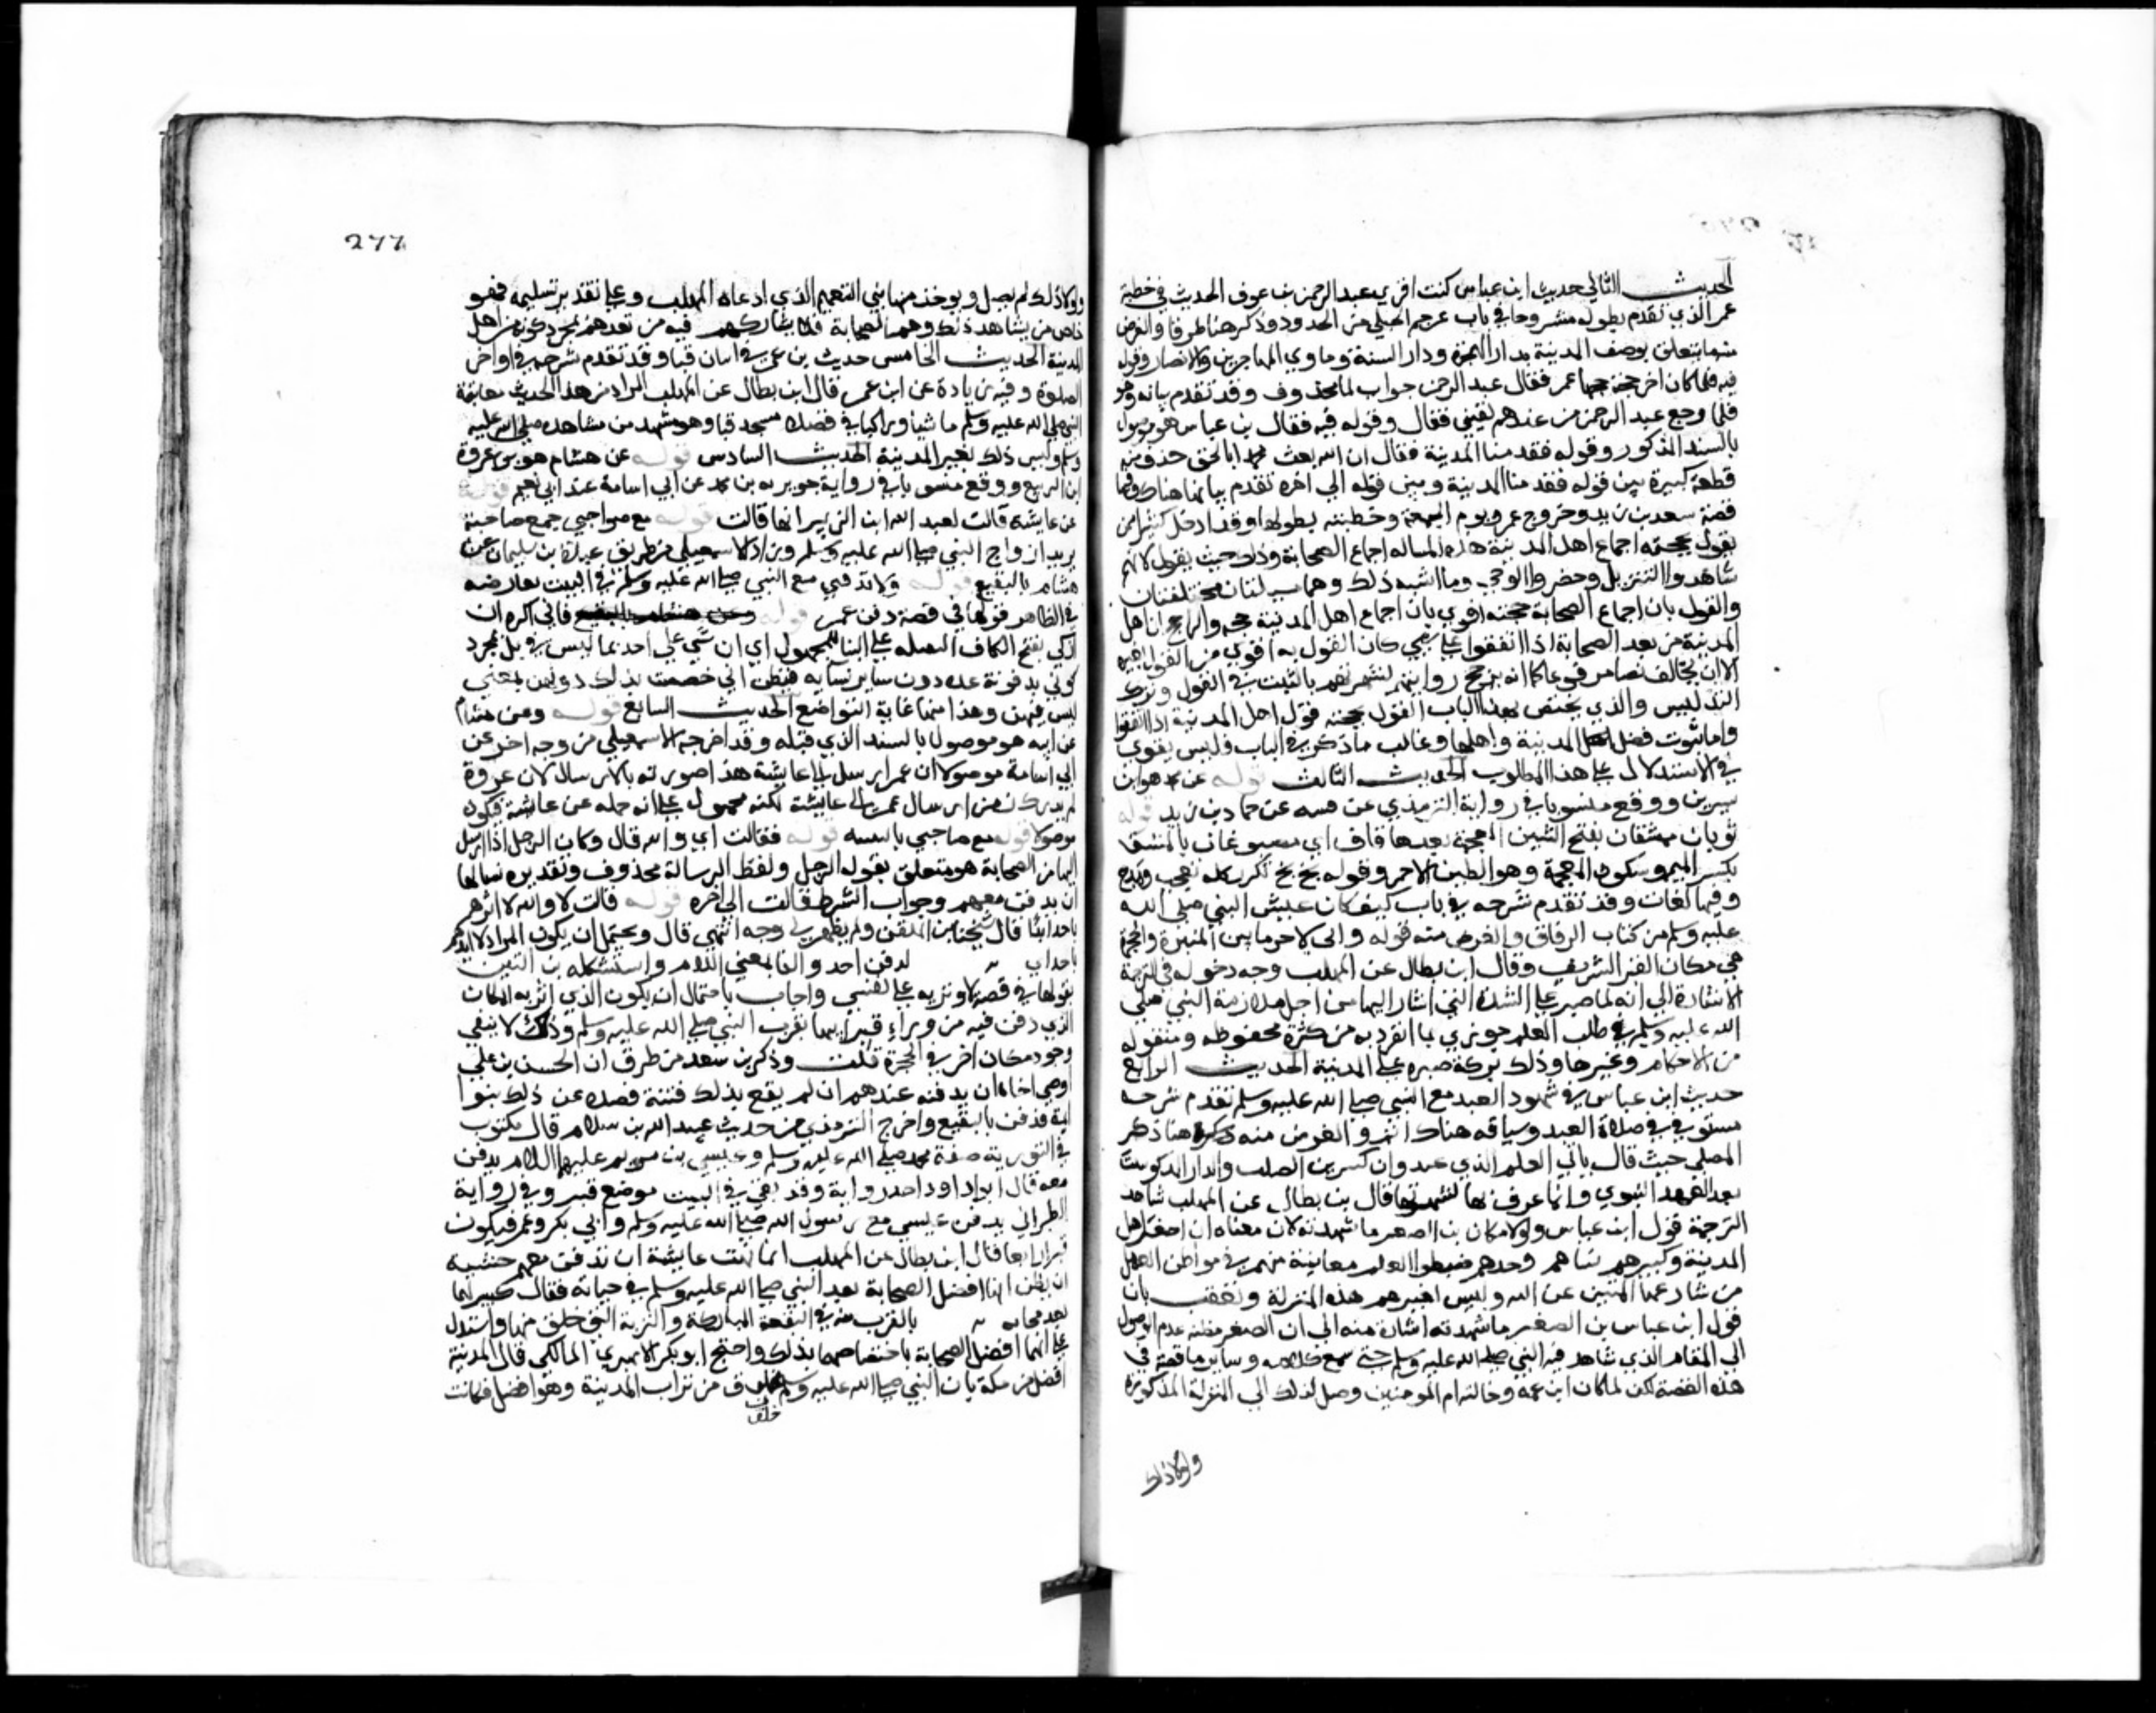 الحديث الثاني حديث ابن عباس كنت اقري عبد الرحمن بن عوف الحديث في خطبة
عمر الذي تقدم بطوله مشروحا في باب رجم الحبلي من الحدود وذكر هنا طرفا والغرض
منه ما يتعلق بوصف المدينة بدار الهجرة ودار السنة وماوي المهاجرين والانصار وقوله
فيه فلما كان اخر حجة حجها عمر فقال عبد الرحمن جواب لما محذوف وقد تقدم بيانه وهو
فلما رجع عبد الرحمن من عندهم لقيني فقال وقوله فيه فقال بن عباس هو موصول
بالسند المذكور وقوله فقدمنا المدينة فقال ان الله بعث محمدا بالحق حذف منه
قطعة كبيرة بين قوله فقدمنا المدينة وبين قوله الي اخره تقدم بيانها هناك وفيها
قصة سعيد بن زيد وخروج عمر ويوم الجمعة وخطبته بطولها وقد ادخل كثير ممن
يقول بحجية اجماع اهل المدينة هذه المساله اجماع الصحابة وذلك حيث يقول لانهم
شاهدوا التنزيل وحضروا الوحي وما اشبه ذلك وهما مسالتان مختلفتان
والقول بان اجماع الصحابة حجة اقوي بان اجماع اهل المدينة حجة والراجح ان اهل
المدينة من بعد الصحابة اذا اتفقوا علي شي كان القول به اقوي من القول بغيره
الا ان يخالف نصا مرفوعا كما انه يرجح روايتهم لشهرتهم بالتثبت في القول وترك
التدليس والذي يختص بهذا الباب القول بحجية قول اهل المدينة اذا اتفقوا
واما ثبوت فضل المدينة واهلها وغالب ما ذكر في الباب فليس يقوي
في الاستدلال علي هذا المطلوب الحديث الثالث قوله عن محمد هو ابن
سيرين ووقع منسوبا في رواية الترمذي عن قتيبة عن حماد بن زيد قوله
ثوبان ممشقان بفتح الشين المعجمة بعدها قاف اي مصبوغان بالمشق
بكسر الميم وسكون المعجمة وهو الطين الاحمر وقوله بخ بخ تكرر كلمة تعجب ومدح
وفيها لغات وقد تقدم شرحه في باب كيف كان عيش النبي صلي الله
عليه وسلم من كتاب الرقاق والغرض منه قوله واني لاخر ما بين المنبر والحجرة
هي مكان القبر الشريف وقال ابن بطال عن المهلب وجه دخوله في الترجمة
الاشارة الي انه لما صبر علي الشدة التي اشار اليها من اجل ملازمة النبي صلي
الله عليه وسلم في طلب العلم جوزي بما انفرد به من كثرة محفوظه ومنقوله
من الاحكام وغيرها وذلك ببركة صبره علي المدينة الحديث الرابع
حديث ابن عباس في شهود العيد مع النبي صلى الله عليه وسلم تقدم شرحه
مستوفي في صلاة العيد وسياقه هناك اتم والغرض منه ذكره هنا ذكر
المصلي حيث قال فاتي العلم الذي عند دار كثير بن الصلت والدار المذكورة
بعد العهد النبوي وانما عرف بها لشهرتها قال بن بطال عن المهلب شاهد
الترجمة قول ابن عباس ولولا مكاني من الصغر ما شهدته لان معناه ان صغير اهل
المدينة وكبيرهم نساهم وخدمهم ضبطوا العلم معاينة منهم في مواطن العمل
من شارعها المبين عن الله وليس لغيرهم هذه المنزلة وتعقب بان
قول ابن عباس من الصغر ما شهدته اشارة منه الي ان الصغر مظنة عدم الوصول
الي المقام الذي شاهد فيه النبي صلى الله عليه وسلم حتى سمع كلامه وساير ما قصه في
هذه القصة لكن لما كان ابن عمه وخالته ام المومنين وصل لذلك الي المنزلة المذكورة
ولولا ذلك
277
ولولا ذلك لم يصل ويوخذ منها نفي التعميم الذي ادعاه المهلب وعلي تقدير تسليمه فهو
خاص بمن شاهد ذلك وهم الصحابة فلا يشاركهم فيه من بعدهم بمجرد كونه من اهل
المدينة الحديث الخامس حديث بن عمر في اتيان قبا وقد تقدم شرحه في اواخر
الصلوة وفيه زيادة عن ابن عمر قال ابن بطال عن المهلب المراد من هذا الحديث معاينة
النبي صلي الله عليه وسلم ماشيا وراكبا في قصده مسجد قبا وهو مشهد من مشاهده صلى الله عليه
وسلم وليس ذلك بغير المدينة الحديث السادس قوله عن هشام هو بن عروة
ابن الزبير ووقع منسوبا في رواية جويرية بن محمد عن ابي اسامة عند ابي نعيم قوله
عن عايشة قالت لعبد الله ابن الزبير انها قالت قوله مع صواحبي جمع صاحبة
يريد ازواج النبي صلى الله عليه وسلم وزاد الاسمعيلي من طريق عبدة بن سليمان عن
هشام بالبقيع قوله ولا تدفني مع النبي صلى الله عليه وسلم في البيت يعارضه
في الظاهر قولها في قصة دفن عمر قوله فاني اكره ان
ازكي بفتح الكاف الثقيلة علي البنا للمجهول اي ان يثني علي احد بما ليس في بل بمجرد
كوني مدفونة عنده دون ساير نسايه فيظن اني خصصت بذلك دونهن لمعني
ليس فيهن وهذا منها غاية التواضع الحديث السابع قوله وعن هشام
عن ابيه هو موصول بالسند الذي قبله وقد اخرجه الاسمعيلي من وجه اخر عن
ابي اسامة موصولا ان عمر ارسل الي عايشة هذا صورته بالارسال لان عروة
لم يدرك زمن ارسال عمر الي عايشة لكنه محمول علي انه حمله عن عايشة فيكون
موصولا قوله مع صاحبي بالتثنية قوله فقالت اي والله قال وكان الرجل اذا ارسل
اليها من الصحابة هو متعلق بقوله الرجل ولفظ الرسالة محذوف وتقديره يسالها
ان يدفن معهم وجواب الشرط قالت الي اخره قوله قالت لا والله لا اوثرهم
باحد ابدا قال شيخنا بن الملقن ولم يظهر لي وجه انتهي قال ويحتمل ان يكون المراد لا اثيرهم
باحد اي لدفن احد والبا بمعني اللام واستشكله بن التين
بقولها في قصة لاوثرنه علي نفسي واجاب باحتمال ان يكون الذي اثرته به المكان
الذي دفن فيه من وراء قبر ابيها بقرب النبي صلى الله عليه وسلم وذلك لا ينفي
وجود مكان اخر في الحجرة قلت وذكر بن سعد من طرق ان الحسن بن علي
اوصي اخاه ان يدفنه عندهم ان لم يقع بذلك فتنة فصده عن ذلك بنوا
امية فدفن بالبقيع واخرج الترمذي من حديث عبد الله بن سلام قال مكتوب
في التورية صفة محمد صلى الله عليه وسلم وعيسي بن مريم عليهما السلام يدفن
معه قال ابو داود احد رواته وقد بقي في البيت موضع قبر وفي رواية
الطبراني يدفن عيسي مع رسول الله صلى الله عليه وسلم وابي بكر وعمر فيكون
قبرا رابعا قال ابن بطال عن المهلب انما كرهت عايشة ان تدفن معهم خشية
ان يظن انها افضل الصحابة بعد النبي صلى الله عليه وسلم في حياته فقال كبيرهما
بعد مماته بالقرب منه في البقعة المباركة والتربة التي خلق منها واستدل
علي انهما افضل الصحابة باختصاصهما بذلك واحتج ابو بكر الابهري المالكي قال المدينة
افضل من مكة بان النبي صلى الله عليه وسلم مخلوق من تراب المدينة وهو افضل فكانت
خلق